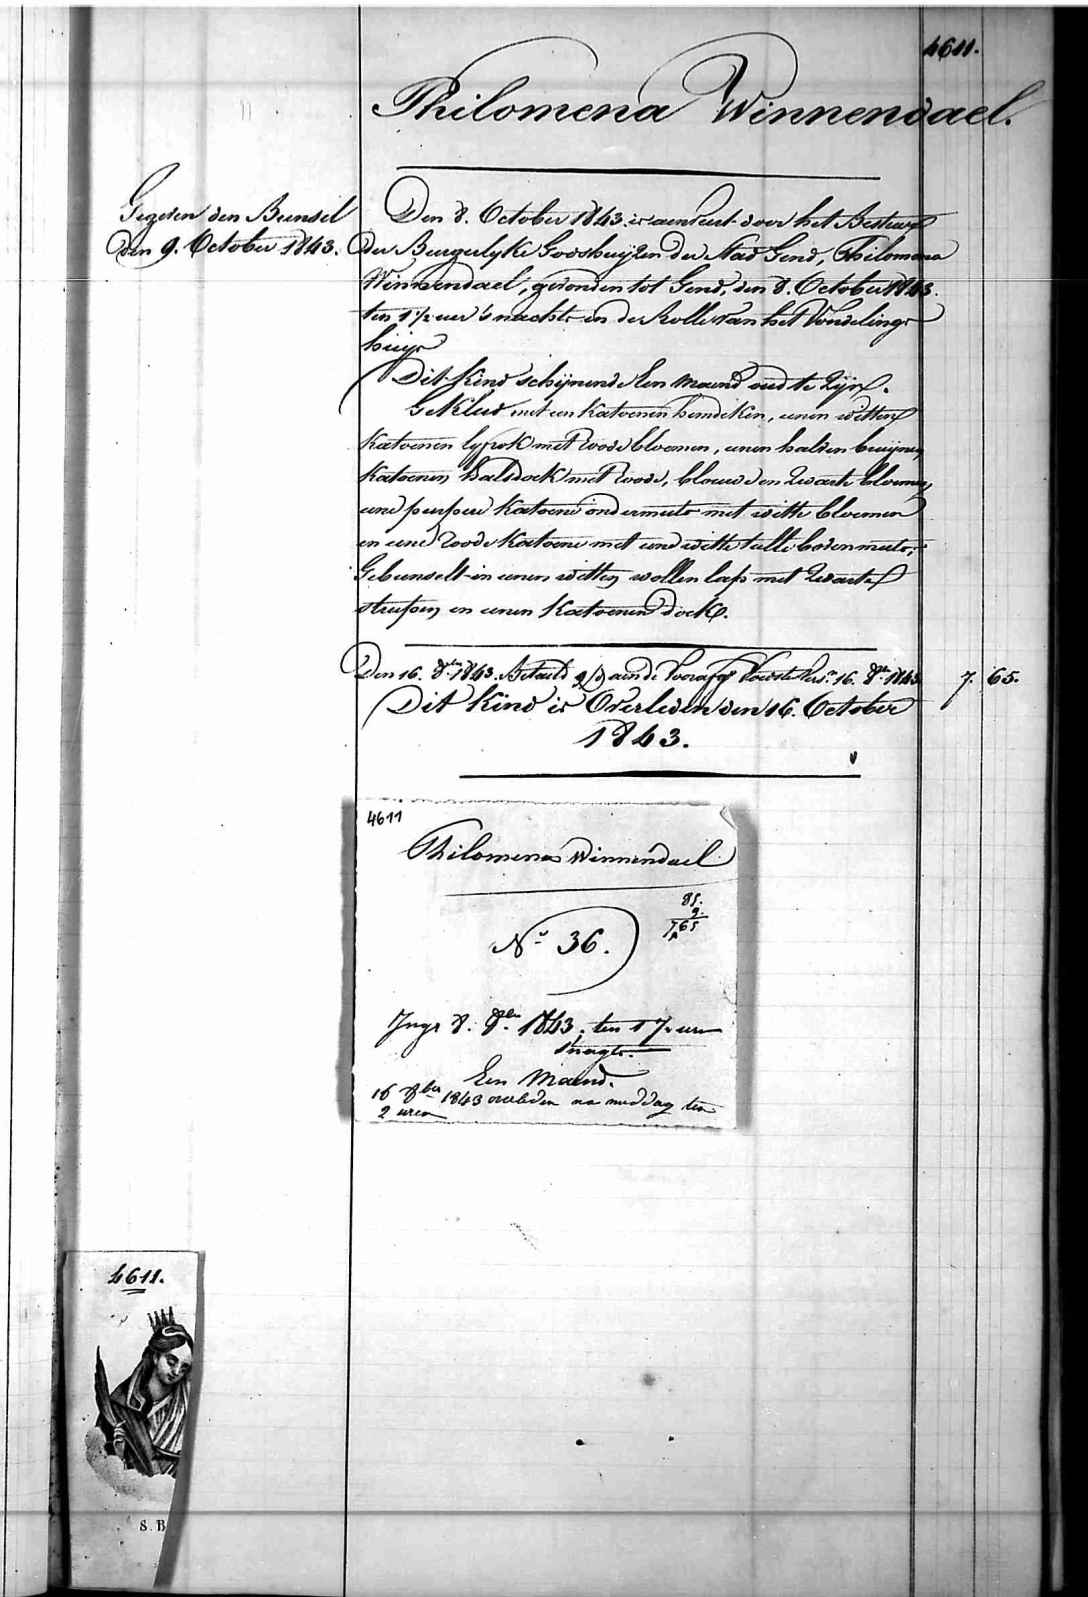 4611.
Philomena Winnendael.
Gegeven den Bunsel
den 9. October 1843.
Den 8. October 1843. is aenveert door het Bestuur
der Burgerlyke Godshuijzen der Stad Gend, Philomena
Winnendael, gevonden tot Gend, den 8. October 1843.
ten 1 1/2 uer 's nachts in de Rolle van het Vondelings
huijs
Dit Kind schijnende Een maend oud te Zijn.
Gekleed met een katoenen hemdeken, eenen witten
katoenen lyfrok met roode bloemen, eenen halven bruijnen
katoenen halsdoek met roode, blouwe en Zwarte bloemen,
eene purpere katoene ondermuts met witte bloemen
en eene roode katoene met eene witte tulle bovenmuts,
Gebunselt in eenen witten wollen lap met Zwarte
streepen en eenen katoenen doek.
Den 16. 8ber 1843. Betaeld 9/d aen de 16. 8ber 1843 7. 65.
Dit Kind is Overleden den 16. October
1843.
4611
Philomena Winnendael
85.
9.
765
No 36.
Ingr 8. 8ber 1843. ten 1 1/2 uren
'snagts.
Een Maend.
16 8ber 1843 overleden na middag ten
2 uren
4611.
S. B